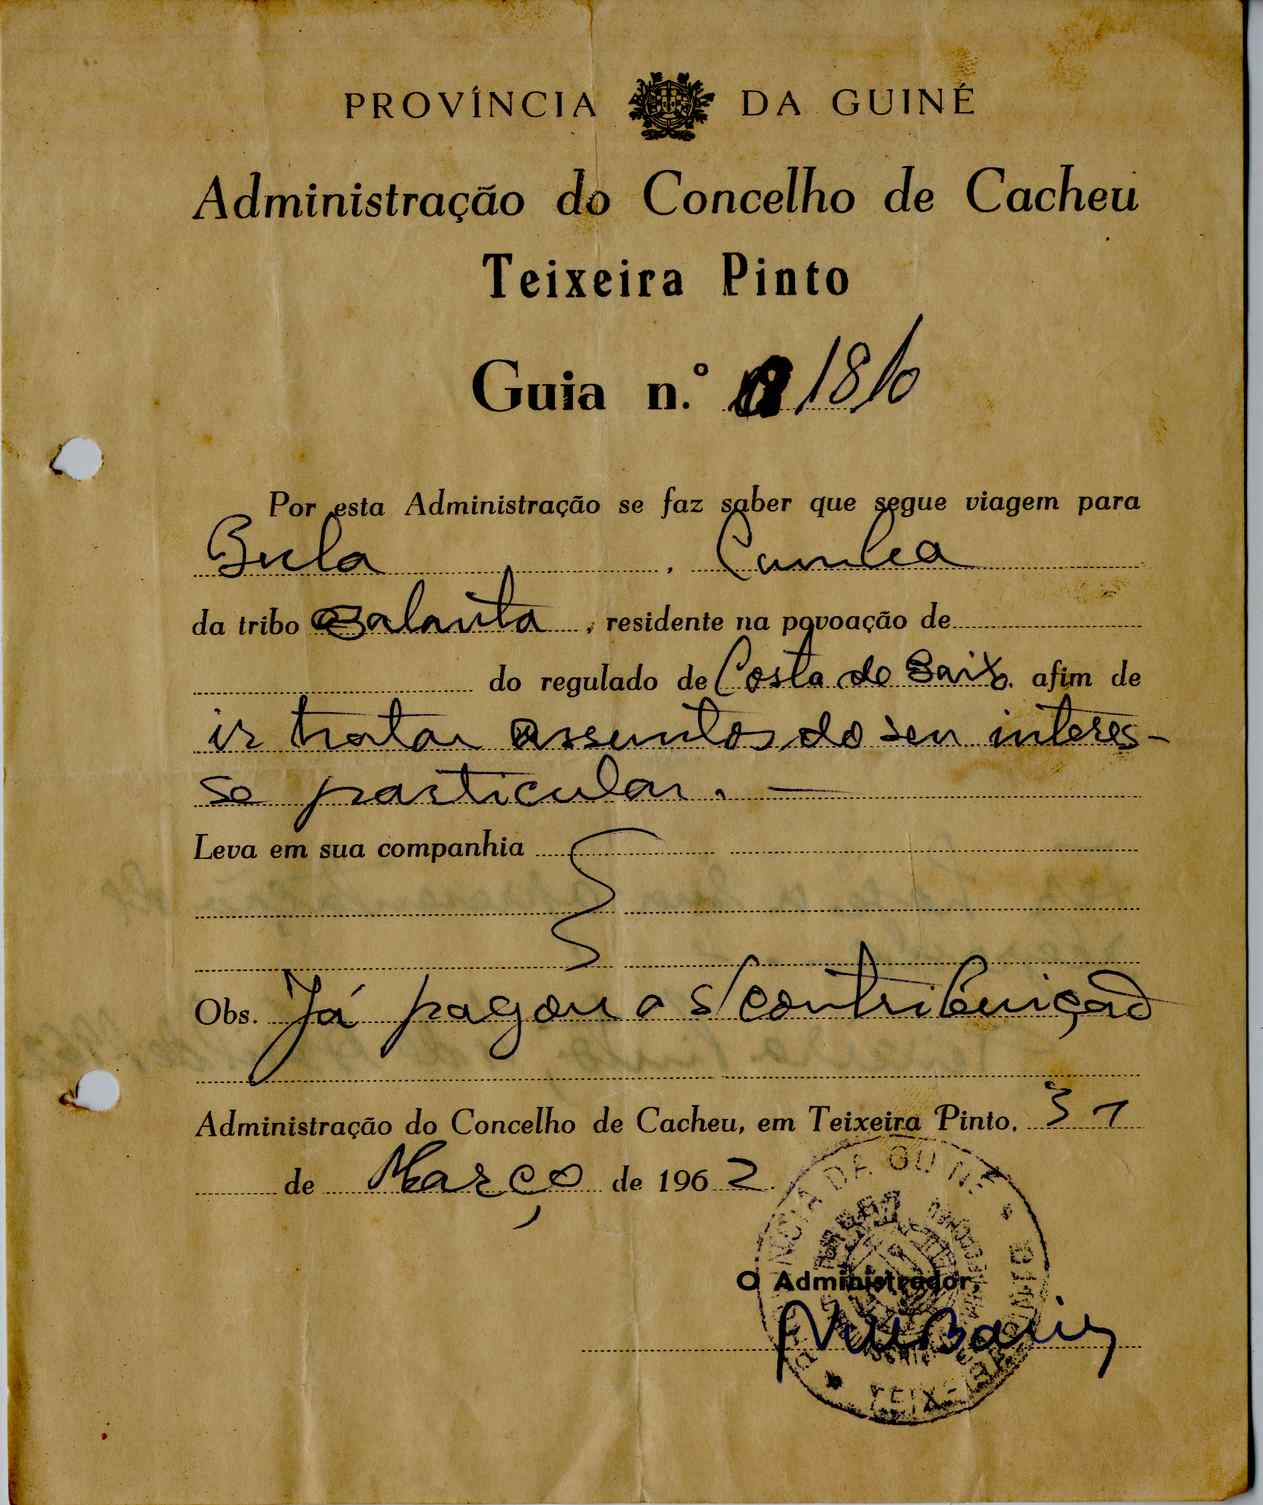 PROVÍNCIA DA GUINÉ
Administração do Concelho de Cacheu
Teixeira Pinto
Guia n.º 18/6
Por esta Administração se faz saber que segue viagem para
Bula, Cumba
da tribo Balanta, residente na povoação de
do regulado de Costa de Baixo. afim de
ir tratar assuntos do seu interes-
se particular. —
Leva em sua companhia
Obs. Já pagou a s/contribuição
Administração do Concelho de Cacheu, em Teixeira Pinto, 31
de Março de 1962.
O Administrador,